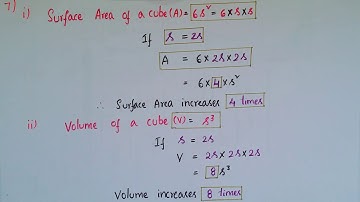 7) i) Surface Area of a cube(A) = 6s² = 6×s×s
If s = 2s
A = 6×2s×2s
= 6×4×s²
∴ Surface Area increases 4 times
ii) Volume of a cube (V) = s³
If s = 2s
V = 2s×2s×2s
= 8s³
Volume increases 8 times